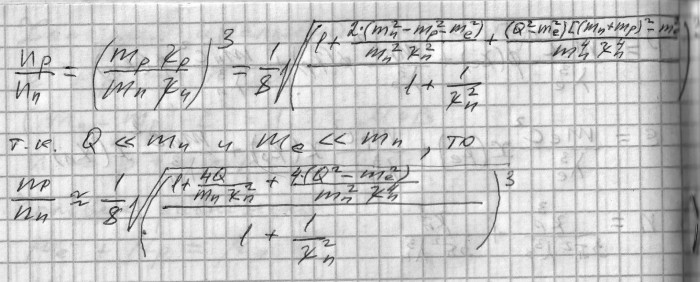 n_p/n_n = (m_p x_p / m_n x_n)^3 = 1/8 √((1 + 2·(m_n^2 - m_p^2 - m_e^2)/(m_n^2 x_n^2) + (Q^2 - m_e^2)[(m_n + m_p)^2 - m_e^2/(m_n^4 x_n^4)) / (1 + 1/x_n^2))
т.к. Q ≪ m_n и m_e ≪ m_n, то
n_p/n_n ≈ 1/8 √((1 + 4Q/(m_n x_n^2) + 4(Q^2 - m_e^2)/(m_n^2 x_n^4)) / (1 + 1/x_n^2))^3